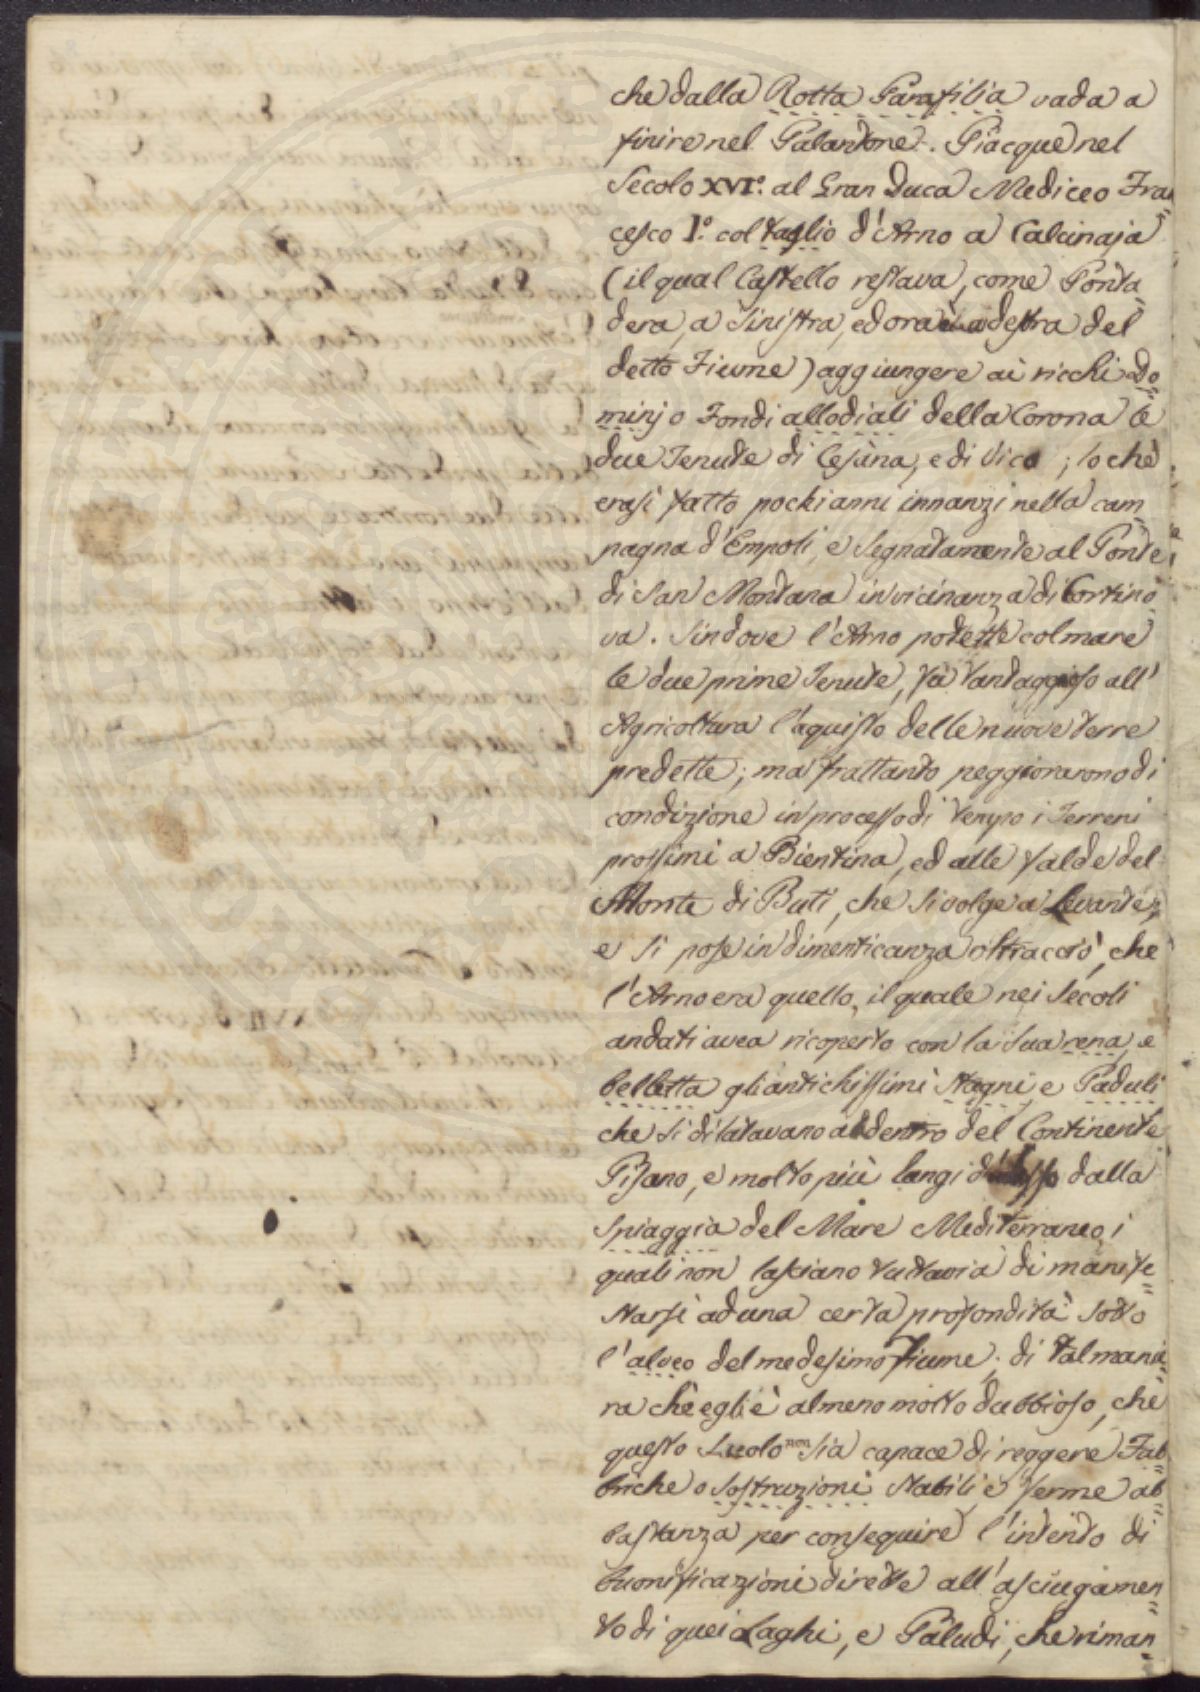 che dalla Rotta Parafilia vada a
finire nel Palandone. Piacque nel
Secolo XVI.º al Gran Duca Mediceo Fran=
cesco I.º col taglio d'Arno a Calcinaja
(il qual Castello restava, come Ponta
dera, a sinistra, ed ora è a destra del
detto Fiume) aggiungere ai ricchi Do=
minj o Fondi allodiali della Corona le
due Tenute di Cesana, e di Vico; lo che
erasi fatto pochi anni innanzi nella cam=
pagna d'Empoli, e segnatamente al Ponte
di San Montana in vicinanza di Cortino
va. Sin dove l'Arno potette colmare
le due prime Tenute, fu vantaggioso all'
Agricoltura l'aquisto delle nuove terre
predette; ma frattanto peggiorarono di
condizione in processo di tempo i Terreni
prossimi a Bientina, ed alle falde del
Monte di Buti, che si volge a Levante,
e si pose in dimenticanza oltracciò, che
l'Arno era quello, il quale nei Secoli
andati avea ricoperto con la sua rena, e
belletta gli antichissimi Stagni e Paduli
che si dilatavano al dentro del Continente
Pisano, e molto più lungi dalla
spiaggia del Mare Mediterraneo, i
quali non lasciano tuttavia di manife=
starsi ad una certa profondità sotto
l'alveo del medesimo Fiume; di tal manie
ra che egli è almeno molto dubbioso, che
questo Suolo non sia capace di reggere Fab=
briche o sostruzioni stabili e ferme ab=
bastanza per conseguire l'intento di
buonificazioni dirette all'asciugamen=
to di quei Laghi, e Paludi, che riman=